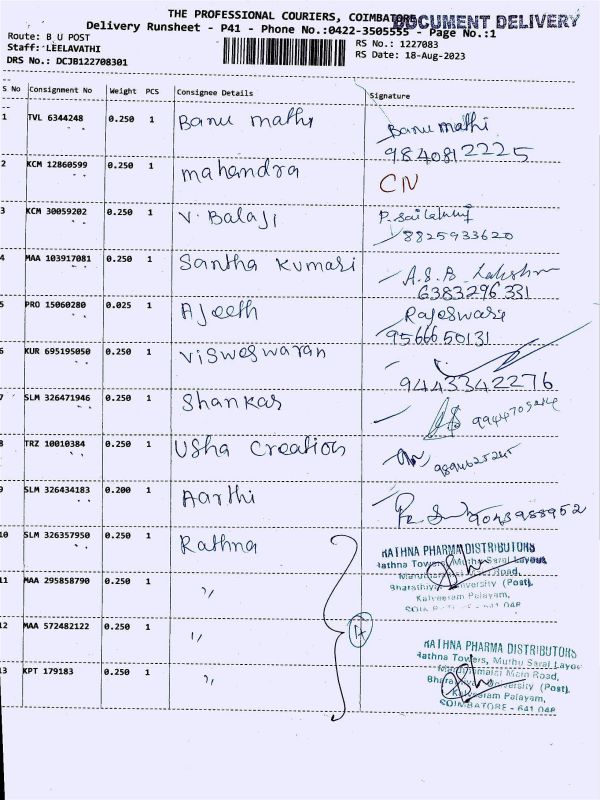 THE PROFESSIONAL COURIERS, COIMBATORE
DOCUMENT DELIVERY
Delivery Runsheet - P41 - Phone No.:0422-3505555 - Page No.:1
Route: B U POST
RS No.: 1227083
Staff: LEELAVATHI
RS Date: 18-Aug-2023
DRS No.: DCJB122708301
S No Consignment No Weight PCS Consignee Details Signature
1 TVL 6344248 0.250 1 Banu mathi Banu mathi
9840812225
2 KCM 12860599 0.250 1 mahendra CN
3 KCM 30059202 0.250 1 V. Balaji P.
8825933620
4 MAA 103917081 0.250 1 Santha Kumari A.S.B
6383296331
5 PRO 15060280 0.025 1 Ajeeth Rajeswari
9566650131
6 KUR 695195050 0.250 1 Visweswaran
9443342276
7 SLM 326471946 0.250 1 Shankar
8 TRZ 10010384 0.250 1 Usha Creation
9 SLM 326434183 0.200 1 Aarthi 9043988952
10 SLM 326357950 0.250 1 Rathna
RATHNA PHARMA DISTRIBUTORS
Rathna Towers, Muthu Saral Layout,
Marudhamalai Main Road,
Bharathiyar University (Post),
Kalveeram Palayam,
COIMBATORE - 641 046
11 MAA 295858790 0.250 1 ,,
12 MAA 572482122 0.250 1 ,,
RATHNA PHARMA DISTRIBUTORS
Rathna Towers, Muthu Saral Layou
Marudhamalai Main Road,
Bharathiyar University (Post),
Kalveeram Palayam,
COIMBATORE - 641 046
13 KPT 179183 0.250 1 ,,